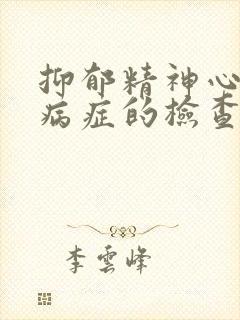 抑郁精神心
病症的檢查
李雲峰